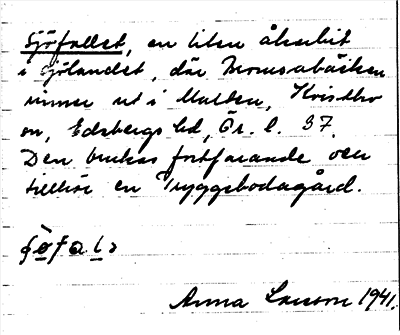 Sjöfallet, en liten åkerbit
i Sjölandet, där Bronsabäcken
rinner ut i Multen, Kvistbro
sn, Edsbergs hd, Ör. l. 37.
Den brukas fortfarande och
tillhör en Tryggebodagård.
Anna Larsson 1941.